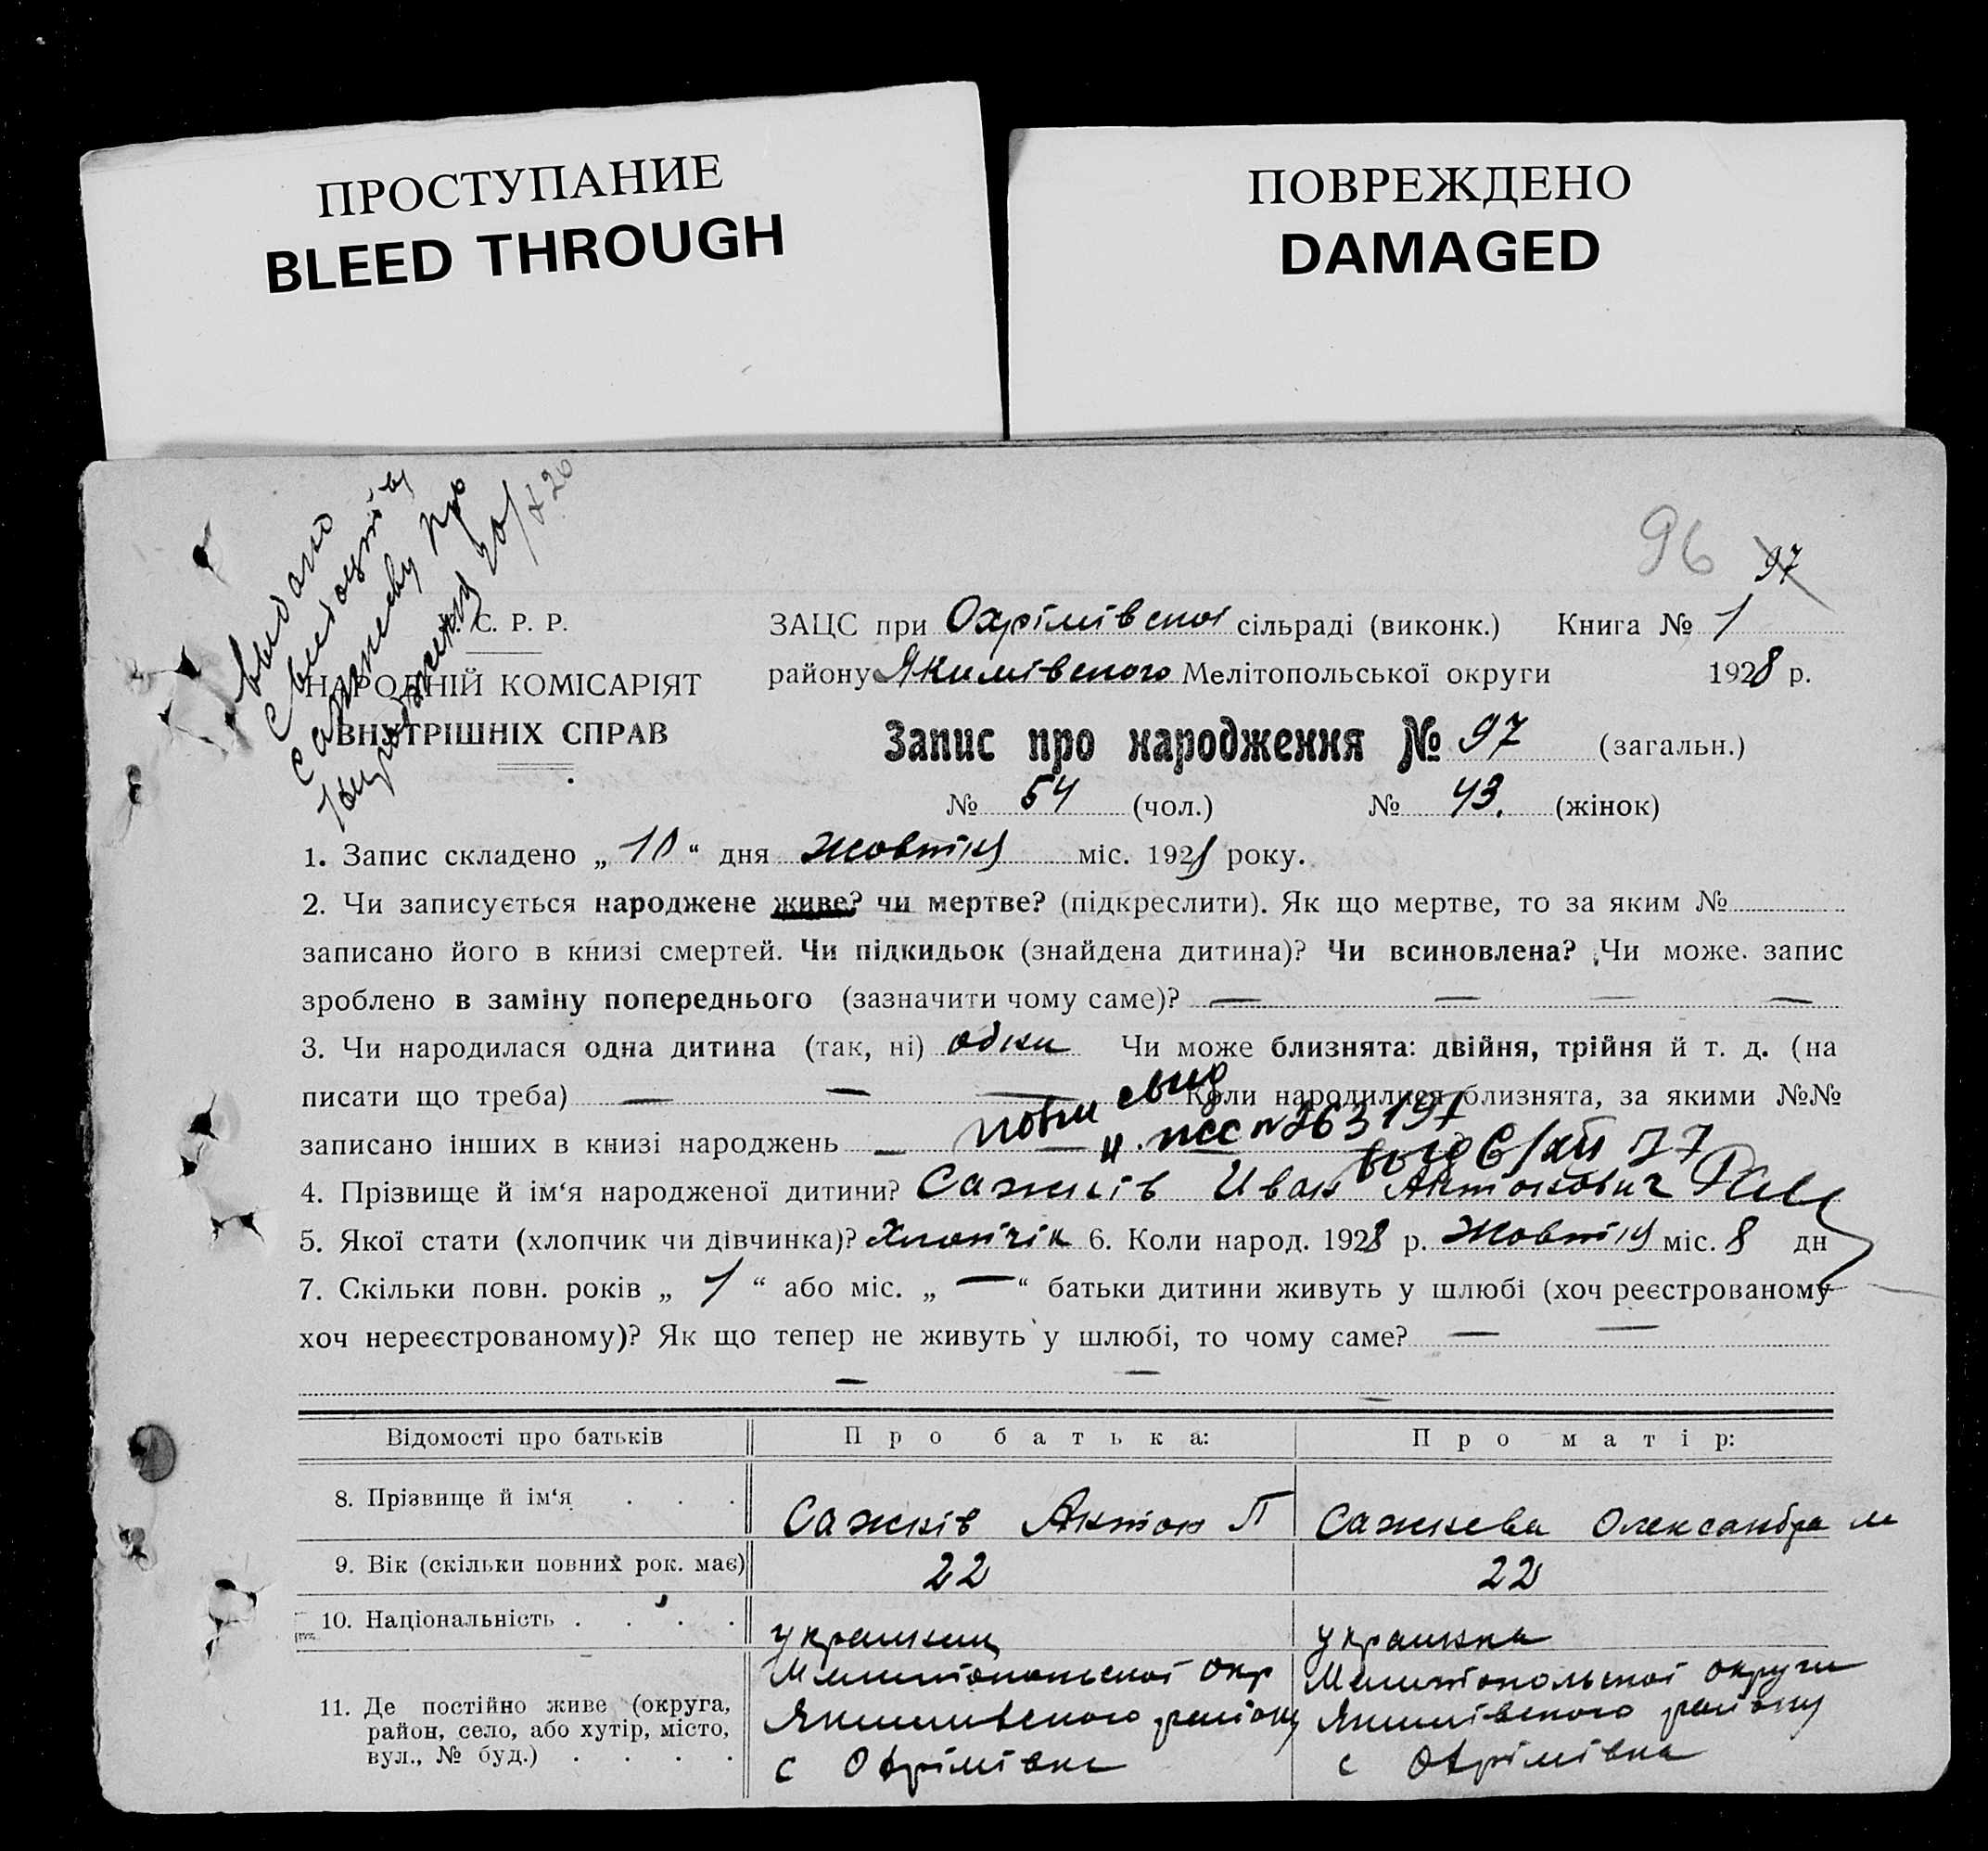 ПРОСТУПАНИЕ
BLEED THROUGH
ПОВРЕЖДЕНО
DAMAGED
96 97
видано
про
С. Р. Р.
НАРОДНІЙ КОМІСАРІЯТ
ВНУТРІШНІХ СПРАВ
ЗАЦС при Охрімівської сільраді (виконк.) Книга № 1
району Якимівского Мелітопольської округи 1928 р.
Запис про народження № 97 (загальн.)
№ 54 (чол.) № 43. (жінок)
1. Запис складено „ 10 “ дня жовтня міс. 1928 року.
2. Чи записується народжене живе? чи мертве? (підкреслити). Як що мертве, то за яким №
записано його в книзі смертей. Чи підкидьок (знайдена дитина)? Чи всиновлена? Чи може запис
зроблено в заміну попереднього (зазначити чому саме)? — — — —
3. Чи народилася одна дитина (так, ні) одна Чи може близнята: двійня, трійня й т. д. (на
писати що треба) — — — Коли народилися близнята, за якими №№
записано інших в книзі народжень —
4. Прізвище й ім‘я народженої дитини? Сажнів Иван Антонович
5. Якої стати (хлопчик чи дівчинка)? Хлопчік 6. Коли народ. 1928 р. Жовтня міс. 8 дн
7. Скільки повн. років „ 1 “ або міс. „ — “ батьки дитини живуть у шлюбі (хоч реєстрованому
хоч нереєстрованому)? Як що тепер не живуть у шлюбі, то чому саме? — —
— — —
Відомості про батьків Про батька: Про матір:
8. Прізвище й ім‘я . . . Сажнів Антон П Сажнева Олександра М
9. Вік (скільки повних рок. має) 22 22
10. Національність . . . . украинец украинка
11. Де постійно живе (округа, район, село, або хутір, місто, вул., № буд.) . . . . Мелитопольскоі окр Якимивского району с Охрімівка Мелитопольскоі округи Якимівского району с Охрімівка